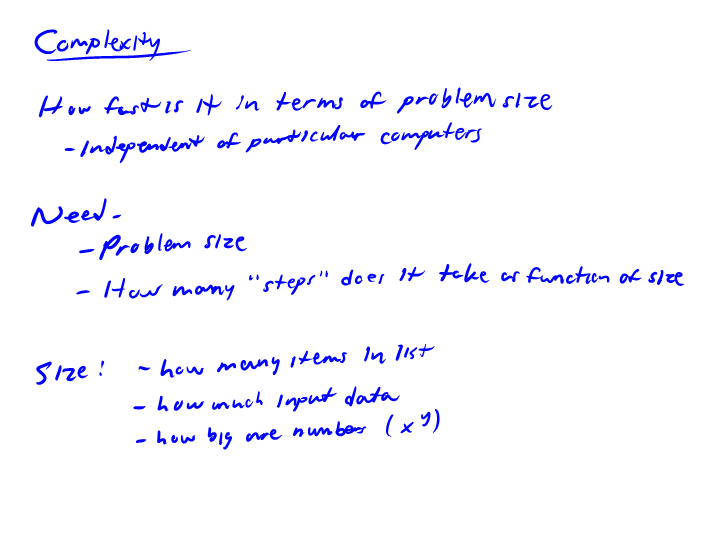 Complexity
How fast is it in terms of problem size
- Independent of particular computers
Need -
- Problem size
- How many "steps" does it take as function of size
Size: - how many items in list
- how much input data
- how big are numbers (x^y)